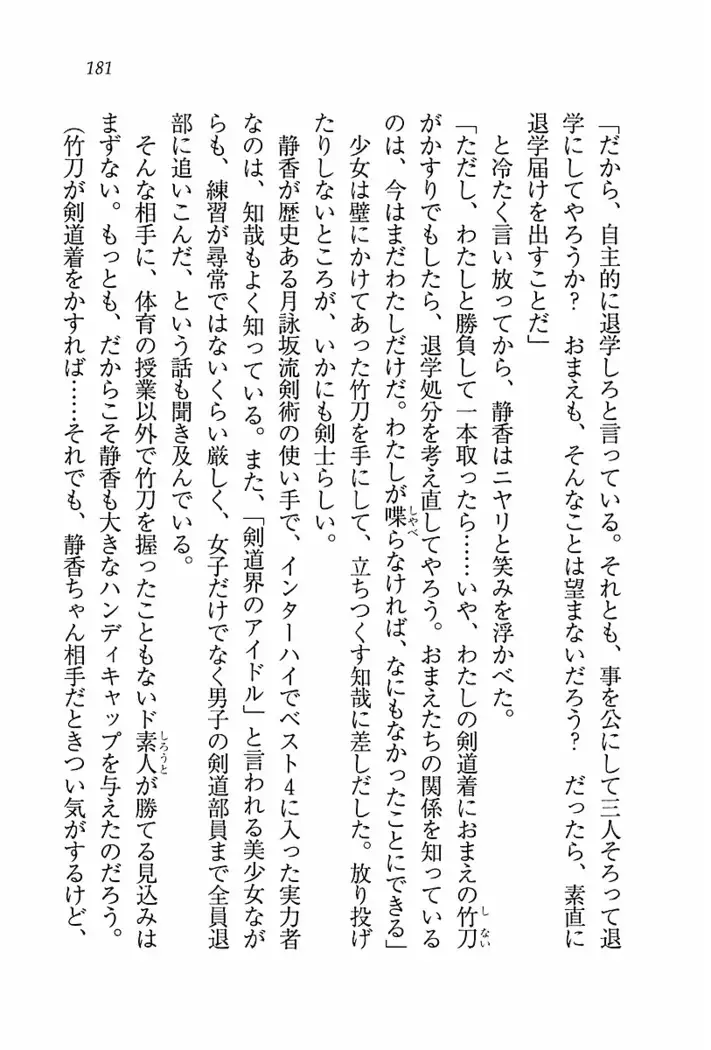 181
「だから、自主的に退学しろと言っている。それとも、事を公にして三人そろって退
学にしてやろうか？　おまえも、そんなことは望まないだろう？　だったら、素直に
退学届けを出すことだ」
　と冷たく言い放ってから、静香はニヤリと笑みを浮かべた。
「ただし、わたしと勝負して一本取ったら……いや、わたしの剣道着におまえの竹刀
がかすりでもしたら、退学処分を考え直してやろう。おまえたちの関係を知っている
のは、今はまだわたしだけだ。わたしが喋らなければ、なにもなかったことにできる」
　少女は壁にかけてあった竹刀を手にして、立ちつくす知哉に差しだした。放り投げ
たりしないところが、いかにも剣士らしい。
　静香が歴史ある月詠坂流剣術の使い手で、インターハイでベスト4に入った実力者
なのは、知哉もよく知っている。また、「剣道界のアイドル」と言われる美少女なが
らも、練習が尋常ではないくらい厳しく、女子だけでなく男子の剣道部員まで全員退
部に追いこんだ、という話も聞き及んでいる。
　そんな相手に、体育の授業以外で竹刀を握ったこともないド素人が勝てる見込みは
まずない。もっとも、だからこそ静香も大きなハンディキャップを与えたのだろう。
（竹刀が剣道着をかすれば……それでも、静香ちゃん相手だときつい気がするけど、